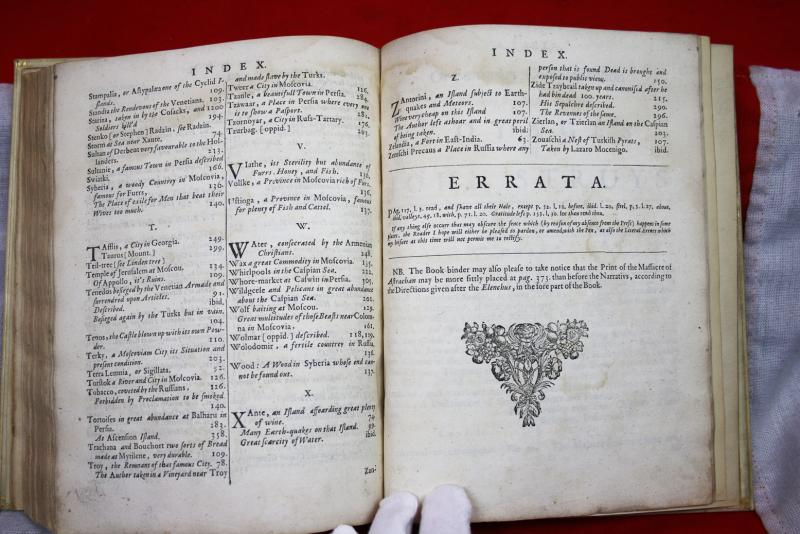 INDEX.
Stampalia, or Astypalæa one of the Cyclid I-
slands. 109.
Standia the Rendevous of the Venetians. 103.
Starica, taken in by the Cosacks, and 1200
Soldiers kill'd 194.
Stenko [or Stephen] Radzin, see Radzin.
Storm at Sea near Xante. 74.
Sultan of Derbeat very favourable to the Hol-
landers. 233.
Sultanie, a famous Town in Persia described
Swiatki. 166.
Syberia, a woody Country in Moscovia,
famous for Furrs. 136.
The Place of exile for Men that beat their
Wives too much. 140.
T.
Tafflis, a City in Georgia. 249.
Taurus [Mount.] 299.
Teil-tree [see Linden tree]
Temple of Jerusalem at Moscou. 134.
Of Appollo, it's Ruins. 109.
Tenedos besieged by the Venetian Armade and
surrendred upon Articles.
Described. ibid.
Besieged again by the Turks but in vain,
104.
Tenos, the Castle blown up with its own Pow-
der. 110.
Terky, a Moscoviam City its Situation and
present condition. 203.
Terra Lemnia, or Sigillata. 52.
Torshok a River and City in Moscovia. 126.
Tobacco, coveted by the Russians, 126.
Forbidden by Proclamation to be smoked.
140.
Tortoises in great abundance at Balbaru in
Persia. 283.
At Ascension Island. 358.
Trachana and Bouchort two sorts of Bread
made at Myrilene, very durable. 109.
Troy, the Remnans of that famous City. 78.
The Author taken in a Vineyard near Troy
and made slave by the Turks.
Tweer a City in Moscovia. 126.
Tzanle, a beautifull Town in Persia. 284.
Tzawaar, a Place in Persia where every one
is to show a Pasport. 281.
Tzornoyar, a City in Rufs-Tartary. 176.
Tzurbag. [oppid.] 203.
V.
Viathe, its Sterility but abundance of
Furrs, Honey, and Fish.
Volske, a Province in Moscovia rich of Furrs.
136.
Ustioga, a Province in Moscovia, famous
for plenty of Fish and Cattel. 137.
W.
WAter, consecrated by the Armenian
Christians. 248.
Wax a great Commodity in Moscovia. 135.
Whirlpools in the Caspian Sea. 222.
Whore-market at Caswin in Persia. 305.
Wildgeese and Pelicans in great abundance
about the Caspian Sea. 202.
Wolf baiting at Moscou. 129.
Great multitudes of those Beasts near Colom-
na in Moscovia. 161.
Wolmar [oppid.] described. 118, 119.
Wolodomir, a fertile country in Russia.
136.
Wood: A Wood in Syberia whose end can-
not be found out. 137.
X.
XAnte, an Island affoarding great plenty
of wine. 74.
Many Earth-quakes on that Island. 99.
Great scarcity of Water. ibid.
Zan-
INDEX.
Z.
ZAntorini, an Island subject to Earth-
quakes and Meteors. 107.
Wine very cheap on this Island 107.
The Author left ashoar and in great peril
of being taken. ibid.
Zelandia, a Fort in East-India. 63.
Zemschi Precaus a Place in Russia where any
person that is found Dead is brought and
exposed to public view. 150.
Zide Tzaybatal taken up and canonised after he
had bin dead 100. years. 215.
His Sepulchre described. 290.
The Revenues of the same. 296.
Zierlan, or Tzierlan an Island on the Caspian
Sea. 203.
Zouaschi a Nest of Turkish Pyrats, 107.
Taken by Lazaro Mocenigo. ibid.
ERRATA.
If any thing else occurr that may obscure the sence which (by reason of my absence from the Presse) happen in some
places, the Reader I hope will either be pleased to pardon, or amend with the Pen, as also the Literal Errors which
up before at this time will not permit me to rectify.
NB. The Book-binder may also please to take notice that the Print of the Massacre of
Astrachan may be more fittly placed at pag. 373. than before the Narrative, according to
the Directions given after the Elenchus, in the fore part of the Book.